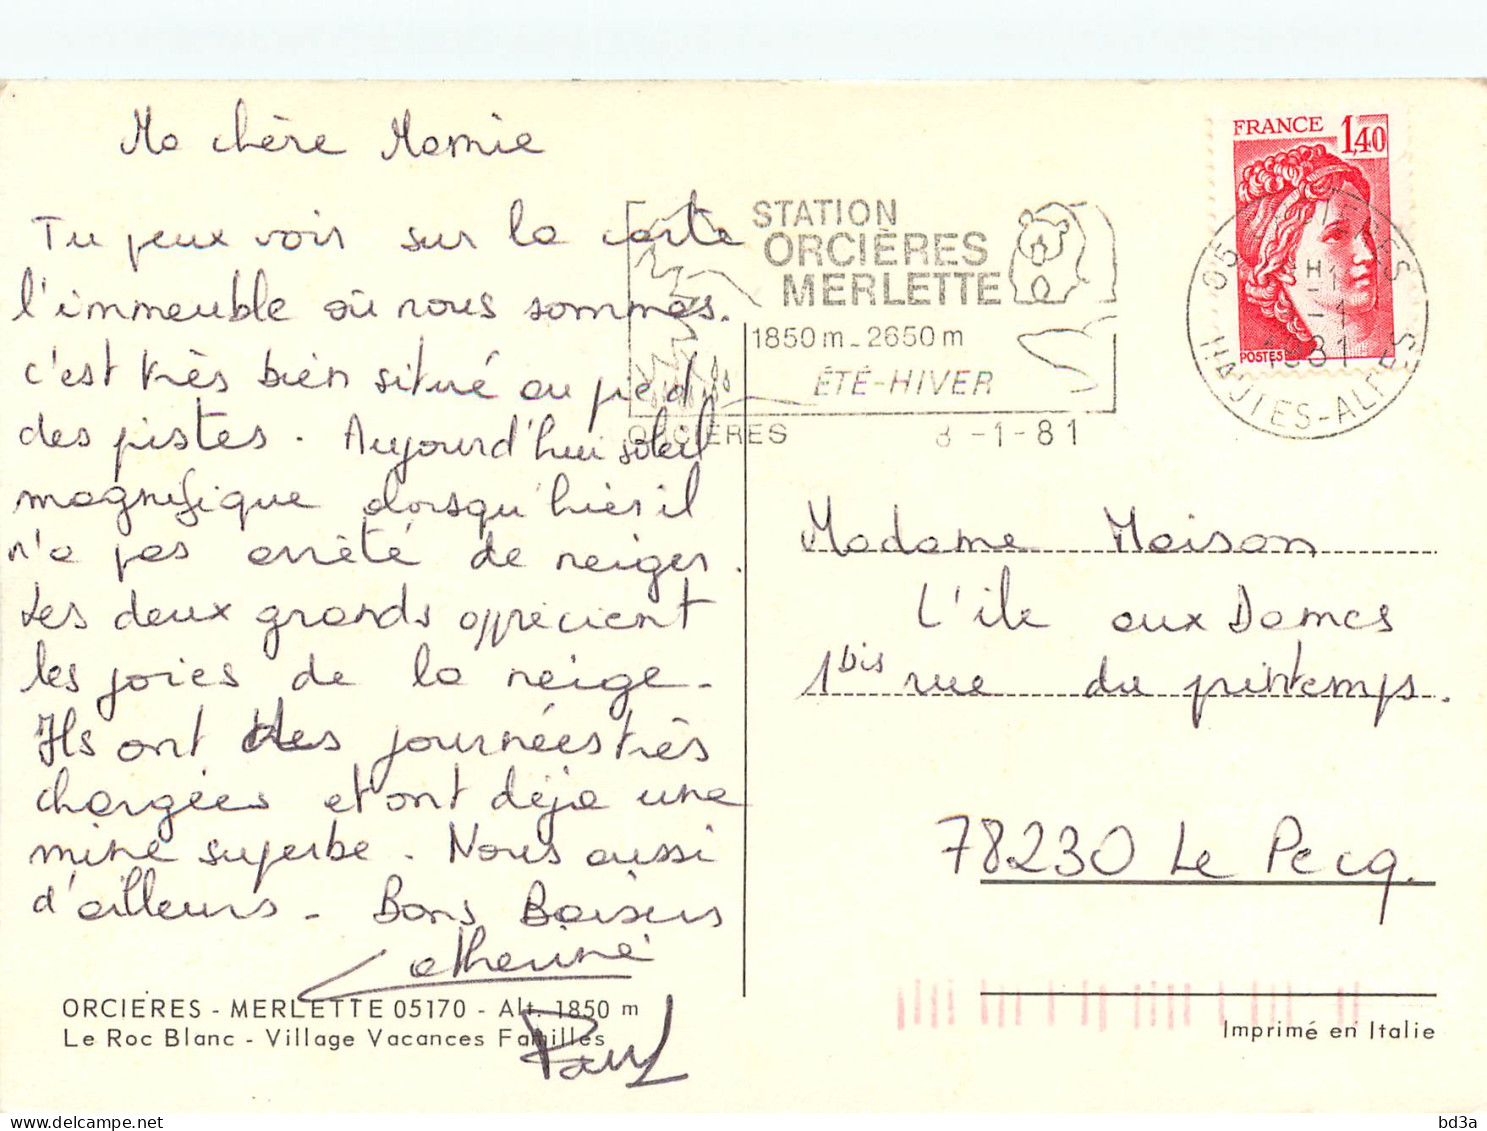 Ma chère Mamie
Tu peux voir sur la carte
l'immeuble où nous sommes.
c'est très bien situé au pied
des pistes. Aujourd'hui soleil
magnifique alorsqu'hier il
n'a pas arrêté de neiger.
Les deux grands apprécient
les joies de la neige.
Ils ont des journées très
chargées et ont déjà une
mine superbe. Nous aussi
d'ailleurs. Bons Baisers
Catherine
Paul
ORCIÈRES - MERLETTE 05170 - Alt. 1850 m
Le Roc Blanc - Village Vacances Familles
STATION
ORCIÈRES
MERLETTE
1850m-2650m
ÉTÉ-HIVER
ORCIERES 8-1-81
FRANCE 1,40
POSTES
05
HAUTES-ALPES
Madame Maison
L'ile aux Dames
1bis rue du printemps.
78230 Le Pecq.
Imprimé en Italie
bd3a